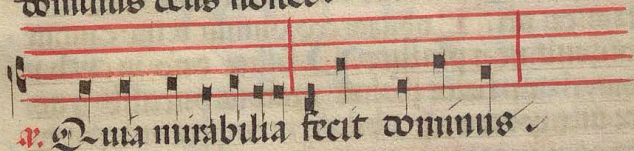 dominus deus noster
℣. Quia mirabilia fecit dominus.